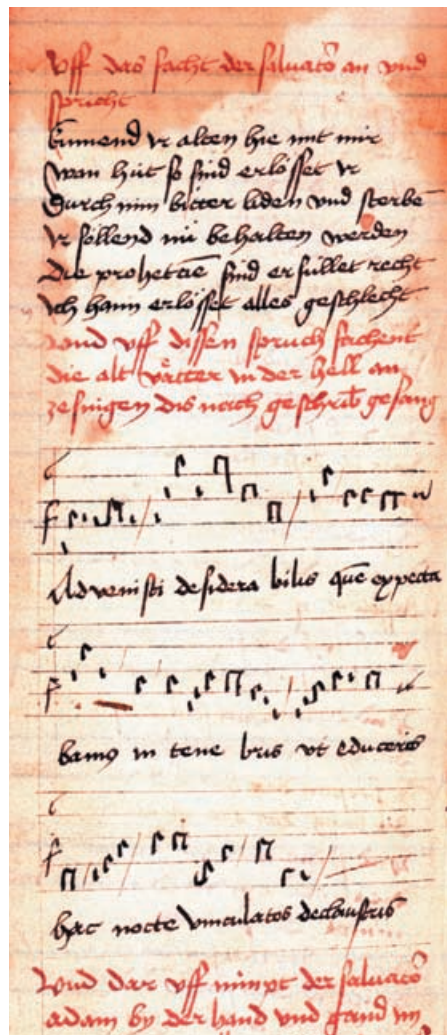 Uff das facht der salvator̄ an und
spricht
kumend ir alten hie mit mir
wan hüt so sind erlösset ir
durch min bitter liden und sterbē
ir söllend nū behalten werden
die prophetiē sind erfüllet recht
ich hann erlösset alles geschlecht
und uff dissen spruch fachent
die alt vätter in der hell an
ze singen dis nach geschrib gesang
Advenisti desidera bilis quē expecta
bamus in tene bris ut educeres
hac nocte vinculatos declaustris
Und dar uff nimpt der salvator̄
adam by der hand und gand in